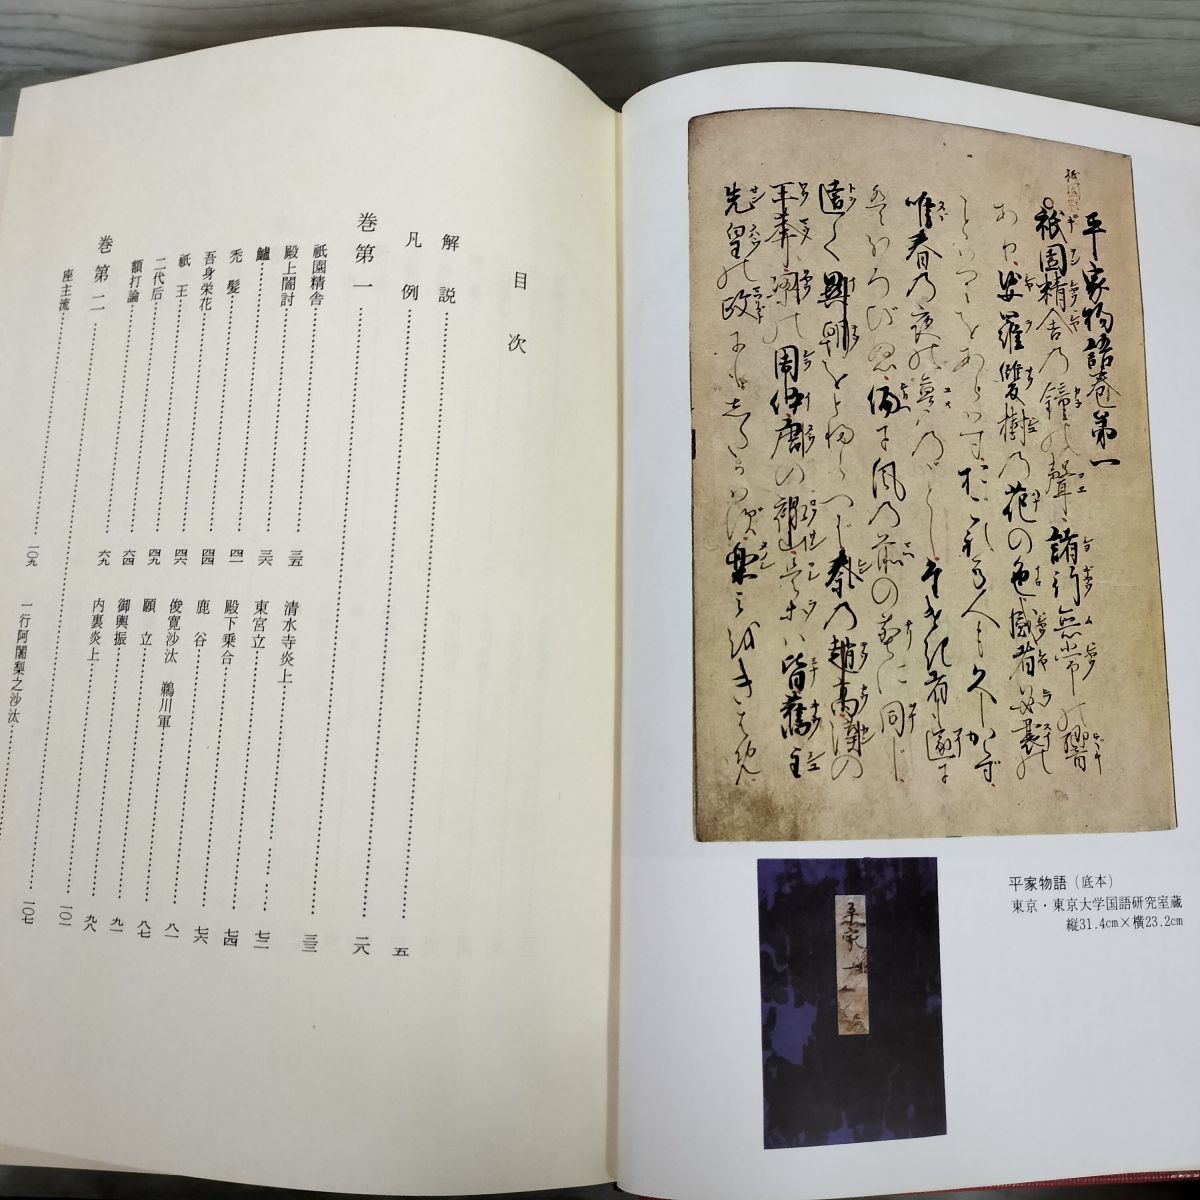 平家物語巻第一
祇園精舎乃鐘の聲諸行無常の響
あり娑羅雙樹乃花の色盛者必衰の
ことはりをあらはすおごれる人も久しからず
唯春乃夜の夢乃ごとしたけき者も遂に
はほろびぬ偏に風乃前の塵に同じ
遠く異朝をとぶらへば秦乃趙高漢の
王莽梁の周伊唐の禄山是等は皆舊主
先皇の政にもしたがはず楽みをきはめ
平家物語（底本）
東京・東京大学国語研究室蔵
縦31.4cm×横23.2cm
目次
解説 五
凡例 二八
巻第一 三三
祇園精舎 三五
殿上闇討 三六
鱸 四一
禿髪 四四
吾身栄花 四六
祇王 四九
二代后 六四
額打論 六九
清水寺炎上 七二
東宮立 七四
殿下乗合 七六
鹿谷 八一
俊寛沙汰 鵜川軍 八七
願立 九一
御輿振 九八
内裏炎上 一〇一
巻第二 一〇七
座主流 一〇九
一行阿闍梨之沙汰